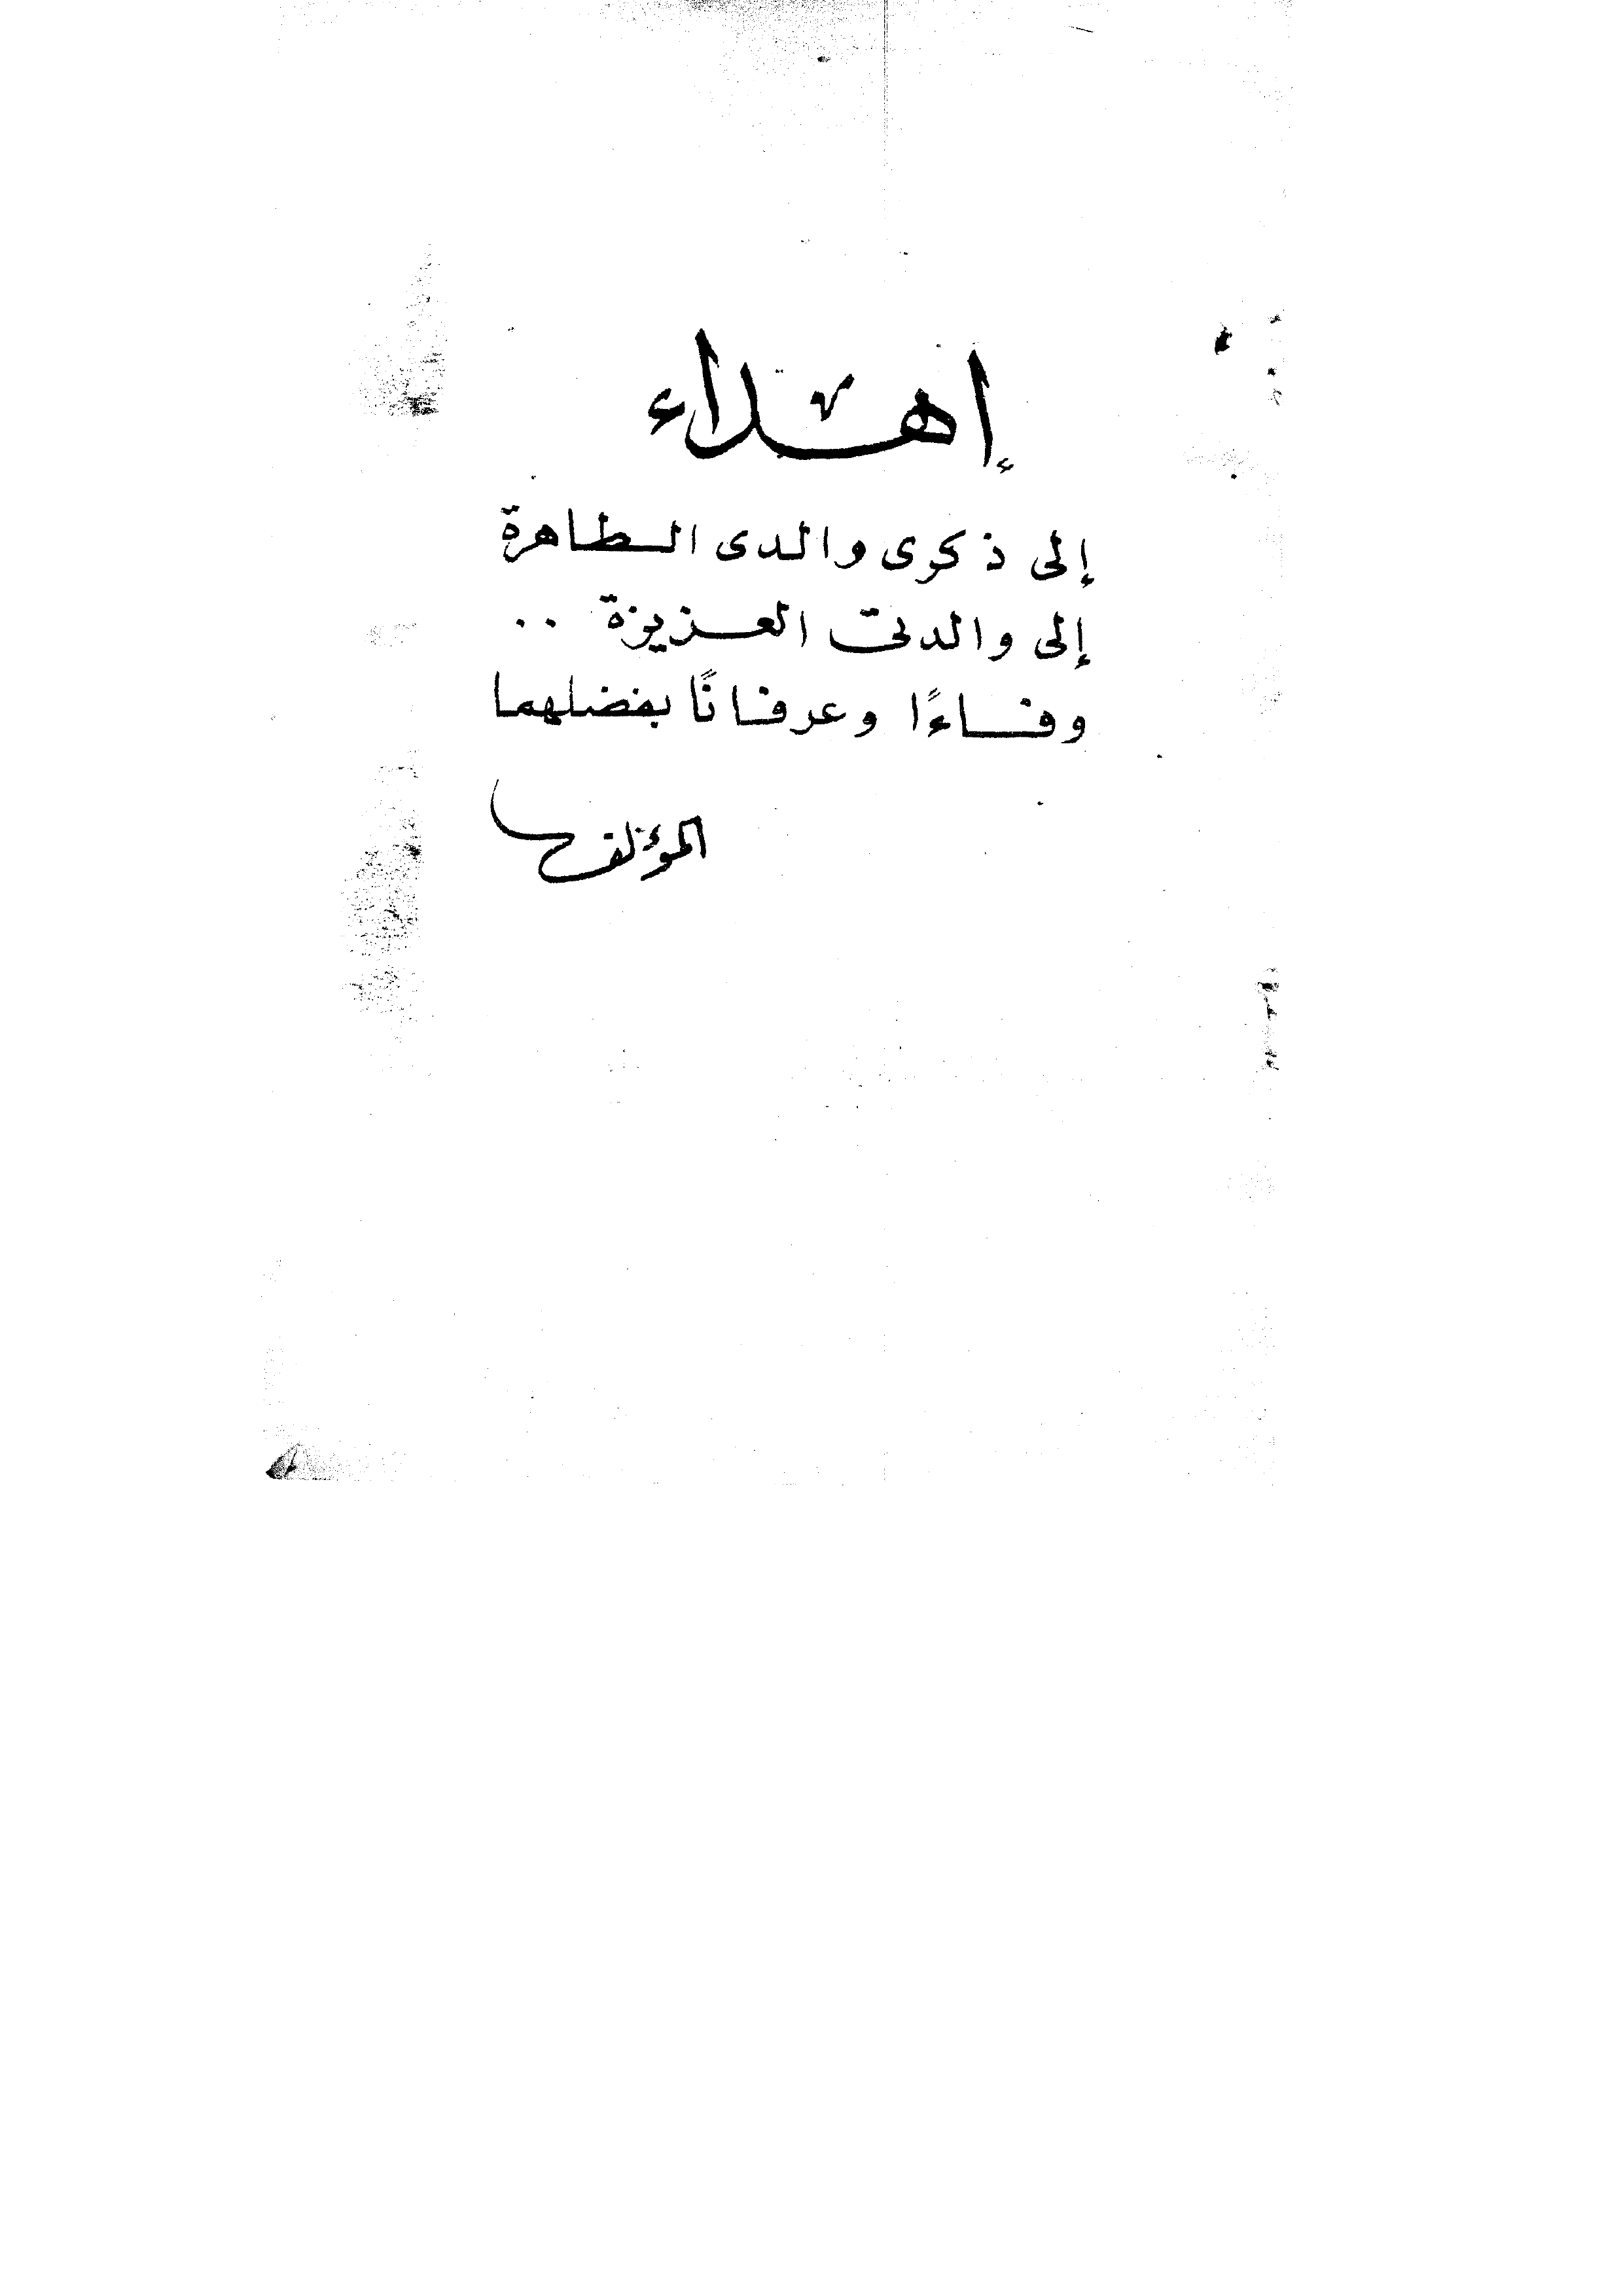 إهداء
إلى ذكرى والدى الطاهرة
إلى والدتى العزيزة ..
وفاءًا وعرفانًا بفضلهما
المؤلف